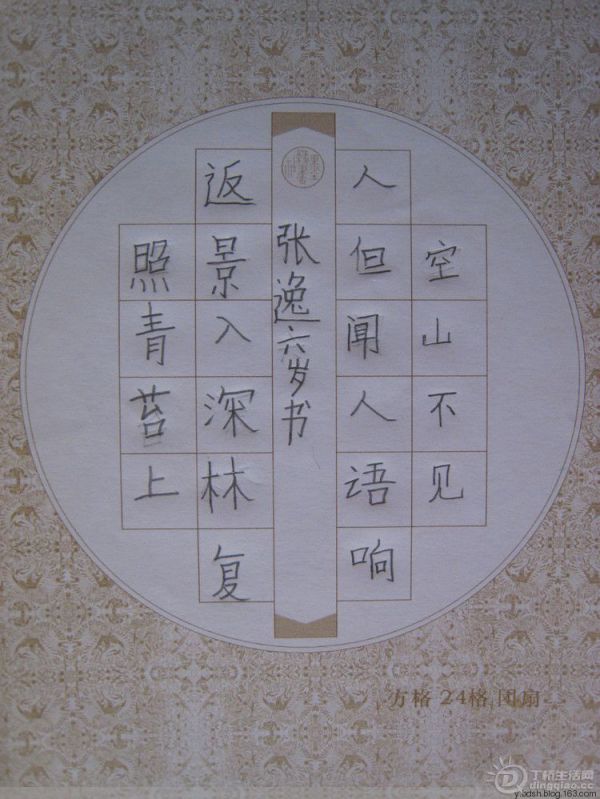 空山不见
人但闻人语响
张逸六岁书
返景入深林复
照青苔上
方格 24格 团扇
丁桥生活网
dingqiao.cc
yladsh.blog.163.com